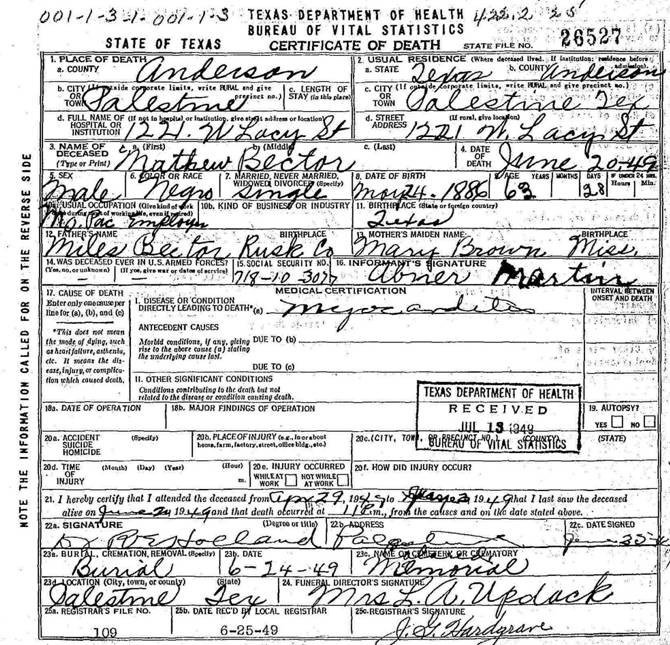 001-1-3-1-001-1-3 TEXAS DEPARTMENT OF HEALTH 422.2
BUREAU OF VITAL STATISTICS
STATE OF TEXAS CERTIFICATE OF DEATH STATE FILE NO. 26527
NOTE THE INFORMATION CALLED FOR ON THE REVERSE SIDE
1. PLACE OF DEATH 2. USUAL RESIDENCE (Where deceased lived. If institution: residence before admission)
a. COUNTY Anderson a. STATE Texas b. COUNTY Anderson
b. CITY (If outside corporate limits, write RURAL and give precinct no.) OR TOWN Palestine c. LENGTH OF STAY (in this place) c. CITY (If outside corporate limits, write RURAL and give precinct no.) OR TOWN Palestine Tex
d. FULL NAME OF (If not in hospital or institution, give street address or location) HOSPITAL OR INSTITUTION 1221 W Lacy St d. STREET ADDRESS (If rural, give location) 1221 W. Lacy St
3. NAME OF DECEASED (Type or Print) a. (First) b. (Middle) c. (Last) Mathew Bector 4. DATE OF DEATH June 20-49
5. SEX Male 6. COLOR OR RACE Negro 7. MARRIED, NEVER MARRIED, WIDOWED, DIVORCED (Specify) Single 8. DATE OF BIRTH 24. 1886 9. AGE YEARS 63 MONTHS DAYS 28 IF UNDER 24 HRS. Hours Min.
10a. USUAL OCCUPATION (Give kind of work done during most of working life, even if retired) Mo. Pac employee 10b. KIND OF BUSINESS OR INDUSTRY 11. BIRTHPLACE (State or foreign country) Texas
12. FATHER'S NAME BIRTHPLACE Miles Bector Rusk Co 13. MOTHER'S MAIDEN NAME BIRTHPLACE Mary Brown Miss.
14. WAS DECEASED EVER IN U.S. ARMED FORCES? (Yes, no, or unknown) (If yes, give war or dates of service) 15. SOCIAL SECURITY NO. 718-10-3077 16. INFORMANT'S SIGNATURE Abner Martin
MEDICAL CERTIFICATION
17. CAUSE OF DEATH Enter only one cause per line for (a), (b), and (c) I. DISEASE OR CONDITION DIRECTLY LEADING TO DEATH* (a) INTERVAL BETWEEN ONSET AND DEATH
*This does not mean the mode of dying, such as heart failure, asthenia, etc. It means the disease, injury, or complication which caused death.
ANTECEDENT CAUSES
Morbid conditions, if any, giving rise to the above cause (a) stating the underlying cause last. DUE TO (b)
DUE TO (c)
II. OTHER SIGNIFICANT CONDITIONS
Conditions contributing to the death but not related to the disease or condition causing death.
TEXAS DEPARTMENT OF HEALTH
RECEIVED
JUL 13 1949
BUREAU OF VITAL STATISTICS
18a. DATE OF OPERATION 18b. MAJOR FINDINGS OF OPERATION 19. AUTOPSY? YES NO
20a. ACCIDENT SUICIDE HOMICIDE (Specify) 20b. PLACE OF INJURY (e.g., in or about home, farm, factory, street, office bldg., etc.) 20c. (CITY, TOWN, OR PRECINCT NO.) (COUNTY) (STATE)
20d. TIME OF INJURY (Month) (Day) (Year) (Hour) m. 20e. INJURY OCCURRED WHILE AT WORK NOT WHILE AT WORK 20f. HOW DID INJURY OCCUR?
21. I hereby certify that I attended the deceased from 1949 to 1949 that I last saw the deceased
alive on June 1949 and that death occurred at m., from the causes and on the date stated above.
22a. SIGNATURE (Degree or title) Holland 22b. ADDRESS Palestine 22c. DATE SIGNED June
23a. BURIAL, CREMATION, REMOVAL (Specify) Burial 23b. DATE 6-24-49 23c. NAME OF CEMETERY OR CREMATORY Memorial
23d. LOCATION (City, town, or county) (State) Palestine Tex 24. FUNERAL DIRECTOR'S SIGNATURE Mrs L. A. Updack
25a. REGISTRAR'S FILE NO. 109 25b. DATE REC'D BY LOCAL REGISTRAR 6-25-49 25c. REGISTRAR'S SIGNATURE J. G. Hardgrave